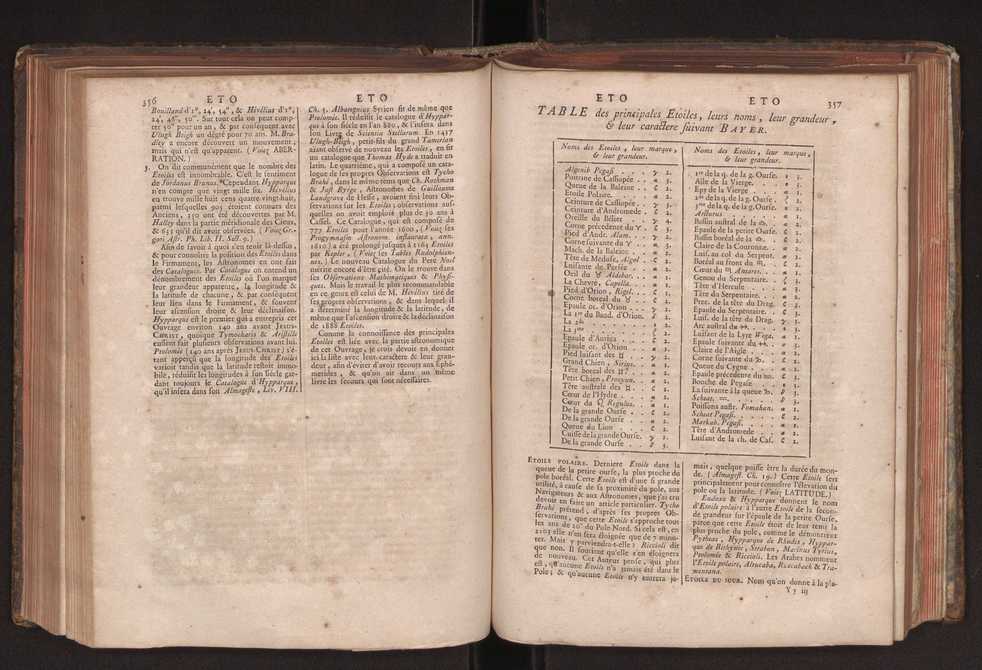 356 ETO ETO
Bouilland d'1°, 24′, 54″, & Hévélius d'1°,
24′, 46″, 50‴. Sur tout cela on peut comp-
ter 50″ pour un an, & par conséquent avec
Ulugh Beigh un dégré pour 70 ans. M. Bra-
dley a encore découvert un mouvement,
mais qui n'est qu'aparent. (Voïez ABER-
RATION.)
3. On dit communément que le nombre des
Etoiles est innombrable. C'est le sentiment
de Jordanus Brunus. Cependant Hypparque
n'en compte que vingt mille six. Hévélius
en trouve mille huit cens quatre-vingt-huit,
parmi lesquelles 905 étoient connues des
Anciens, 350 ont été découvertes par M.
Halley dans la partie méridionale des Cieux,
& 633 qu'il dit avoir observées. (Voïez Gre-
gori Astr. Ph. Lib. II. Sect. 9.)
Afin de savoir à quoi s'en tenir là-dessus,
& pour connoître la position des Etoiles dans
le Firmament, les Astronomes en ont fait
des Catalogues. Par Catalogue on entend un
dénombrement des Etoiles où l'on marque
leur grandeur apparente, la longitude &
la latitude de chacune, & par conséquent
leur lieu dans le Firmament, & souvent
leur ascension droite & leur déclinaison.
Hypparque est le premier qui a entrepris cet
Ouvrage environ 140 ans avant JESUS-
CHRIST, quoique Tymocharis & Aristille
eussent fait plusieurs observations avant lui.
Ptolomée (140 ans après JESUS-CHRIST) s'é-
tant apperçu que la longitude des Etoiles
varioit tandis que la latitude restoit immo-
bile, réduisit les longitudes à son siécle gar-
dant toujours le Catalogue d'Hypparque,
qu'il insera dans son Almageste, Liv. VIII.
Ch. 5. Albategnius Syrien fit de même que
Ptolomée. Il réduisit le catalogue d'Hyppar-
que à son siécle en l'an 880, & l'insera dans
son Livre de Scientia Stellarum. En 1437
Ulugh-Beigh, petit-fils du grand Tamerlan
aïant observé de nouveau les Etoiles, en fit
un catalogue que Thomas Hyde a traduit en
latin. Le quatriéme, qui a composé un cata-
logue de ses propres Observations est Tycho
Brahé, dans le même tems que Ch. Rothman
& Just Byrge, Astronomes de Guillaume
Landgrave de Hesse, avoient fini leurs Ob-
servations sur les Etoiles; observations aus-
quelles on avoit emploïé plus de 30 ans à
Cassel. Ce Catalogue, qui est composé de
777 Etoiles pour l'année 1600, (Voïez ses
Progymnasin Astronom. instauratæ, ann.
1610) a été prolongé jusques à 1163 Etoiles
par Kepler, (Voïez ses Tables Rudolphien-
nes.) Le nouveau Catalogue du Pere Noël
mérite encore d'être cité. On le trouve dans
ses Observations Mathématiques & Physi-
ques. Mais le travail le plus recommandable
en ce genre est celui de M. Hévélius tiré de
ses propres observations, & dans lequel il
a déterminé la longitude & la latitude, de
même que l'ascension droite & la déclinaison
de 1888 Etoiles.
Comme la connoissance des principales
Etoiles est liée avec la partie astronomique
de cet Ouvrage, je crois devoir en donner
ici la liste avec leur caractére & leur gran-
deur, afin d'éviter d'avoir recours aux Ephé-
mérides, & qu'on ait dans un même
livre les secours qui sont nécessaires.
ETO ETO 357
TABLE des principales Etoiles, leurs noms, leur grandeur,
& leur caractere suivant BAYER.
Noms des Etoiles, leur marque,
& leur grandeur.
Algenib Pegasi . . . γ 2.
Poitrine de Cassiopée . . α 3.
Queue de la Baleine . . 2.
Etoile Polaire. . . . α 2.
Ceinture de Cassiopée . . γ 3.
Ceinture d'Andromede . . 2.
Oreille du Belier . . γ 4.
Corne précedente du ♈. 3.
Pied d'Andr. Alam. . . γ 2.
Corne suivante du ♈ . . α 3.
Mach. de la Baleine. . . α 2.
Tête de Meduse, Algol . 2.
Luisante de Persée . . α 2.
Oeil du ♉ Aldebar. . . α 1.
La Chevre, Capella. . . α 1.
Pied d'Orion, Rigel. . 1.
Corne boreal du ♉ . . 2.
Epaule oc. d'Orion . . γ 2.
La 1re du Baud. d'Orion. δ 2.
La 2de . . . . 2.
La 3me . . . . ζ 2.
Epaule d'Auriga . . 2.
Epaule or. d'Orion . . α 1.
Pied luisant des ♊ . . γ 2.
Grand Chien, Sirius. . . α 1.
Tête boreal des ♊? . . α 2.
Petit Chien, Procyon. . . α 1.
Tête australe des ♊. . 2.
Cœur de l'Hydre . . α 2.
Cœur du ♌ Regulus. . . α 1.
De la grande Ourse . . 2.
De la grande Ourse . . α 2.
Queue du Lion . . 2.
Cuisse de la grande Ourse. γ 2.
De la grande Ourse . . δ 3.
Noms des Etoiles, leur marque,
& leur grandeur.
1re de la q. de la g. Ourse. 2.
Aîle de la Vierge. . . 3.
Epy de la Vierge . . α 1.
2de de la q. de la g. Ourse. ζ 2.
3me de la q. de la g. Ourse. 2.
Arcturus . . . α 1.
Bassin austral de la ♎. . 2.
Epaule de la petite Ourse. 2.
Bassin boréal de la ♎. 2.
Claire de la Couronne. . α 2.
Luis. au col du Serpent. α 2.
Boréal au front du ♏. 2.
Cœur du ♏ Antares. . . α 1.
Genou du Serpentaire. . 3.
Tête d'Hercule . . α 3.
Tête du Serpentaire. . α 2.
Prec. de la tête du Drag. 3.
Epaule du Serpentaire. . 3.
Luis. de la tête du Drag. γ 3.
Arc austral du ♐. . .
Luisant de la Lyre Wega. α 1.
Epaule suivante du ♐. .
Claire de l'Aigle . . α 2.
Corne suivante du ♑. . 3.
Queue du Cygne . . α 2.
Epaule précedente du ♒. 3.
Bouche de Pegase . . 3.
La suivante à la queue ♑. δ 3.
Scheat. ♒. . . δ 3.
Poissons austr. Fomahan. α 1.
Scheat Pegasi. . . 2.
Markab. Pegasi. . . α 2.
Tête d'Andromede . . α 2.
Luisant de la ch. de Cas. 2.
ETOILE POLAIRE. Derniere Etoile dans la
queue de la petite ourse, la plus proche du
pole boréal. Cette Etoile est d'une si grande
utilité, à cause de sa proximité du pole, aux
Navigateurs & aux Astronomes, que j'ai cru
devoir en faire un article particulier. Tycho
Brahé prétend, d'après ses propres Ob-
servations, que cette Etoile s'approche tous
les ans de 20″ du Pole Nord. Si cela est, en
2103 elle n'en sera éloignée que de 7 minu-
tes. Mais y parviendra-t-elle? Riccioli dit
que non. Il soutient qu'elle s'en éloignera
de nouveau. Cet Auteur pense, qui plus
est, qu'aucune Etoile n'a jamais été dans le
Pole; & qu'aucune Etoile n'y entrera ja-
mais, quelque puisse être la durée du mon-
de. (Almagest. Ch. 19.) Cette Etoile sert
principalement pour connoître l'élevation du
pole ou la latitude. (Voïez LATITUDE.)
Eudoxe & Hypparque donnent le nom
d'Etoile polaire à l'autre Etoile de la secon-
de grandeur sur l'épaule de la petite Ourse,
parce que cette Etoile étoit de leur tems la
plus proche du pole, comme le démontrent
Pytheas, Hypparque de Rhodes, Hyppar-
que de Bithynie, Strabon, Marinus Tyrius,
Ptolomée & Riccioli. Les Arabes nomment
l'Etoile polaire, Alrucaba, Ruccabach & Tra-
montana.
ETOILE DU JOUR. Nom qu'on donne à la pla-
Yy iij